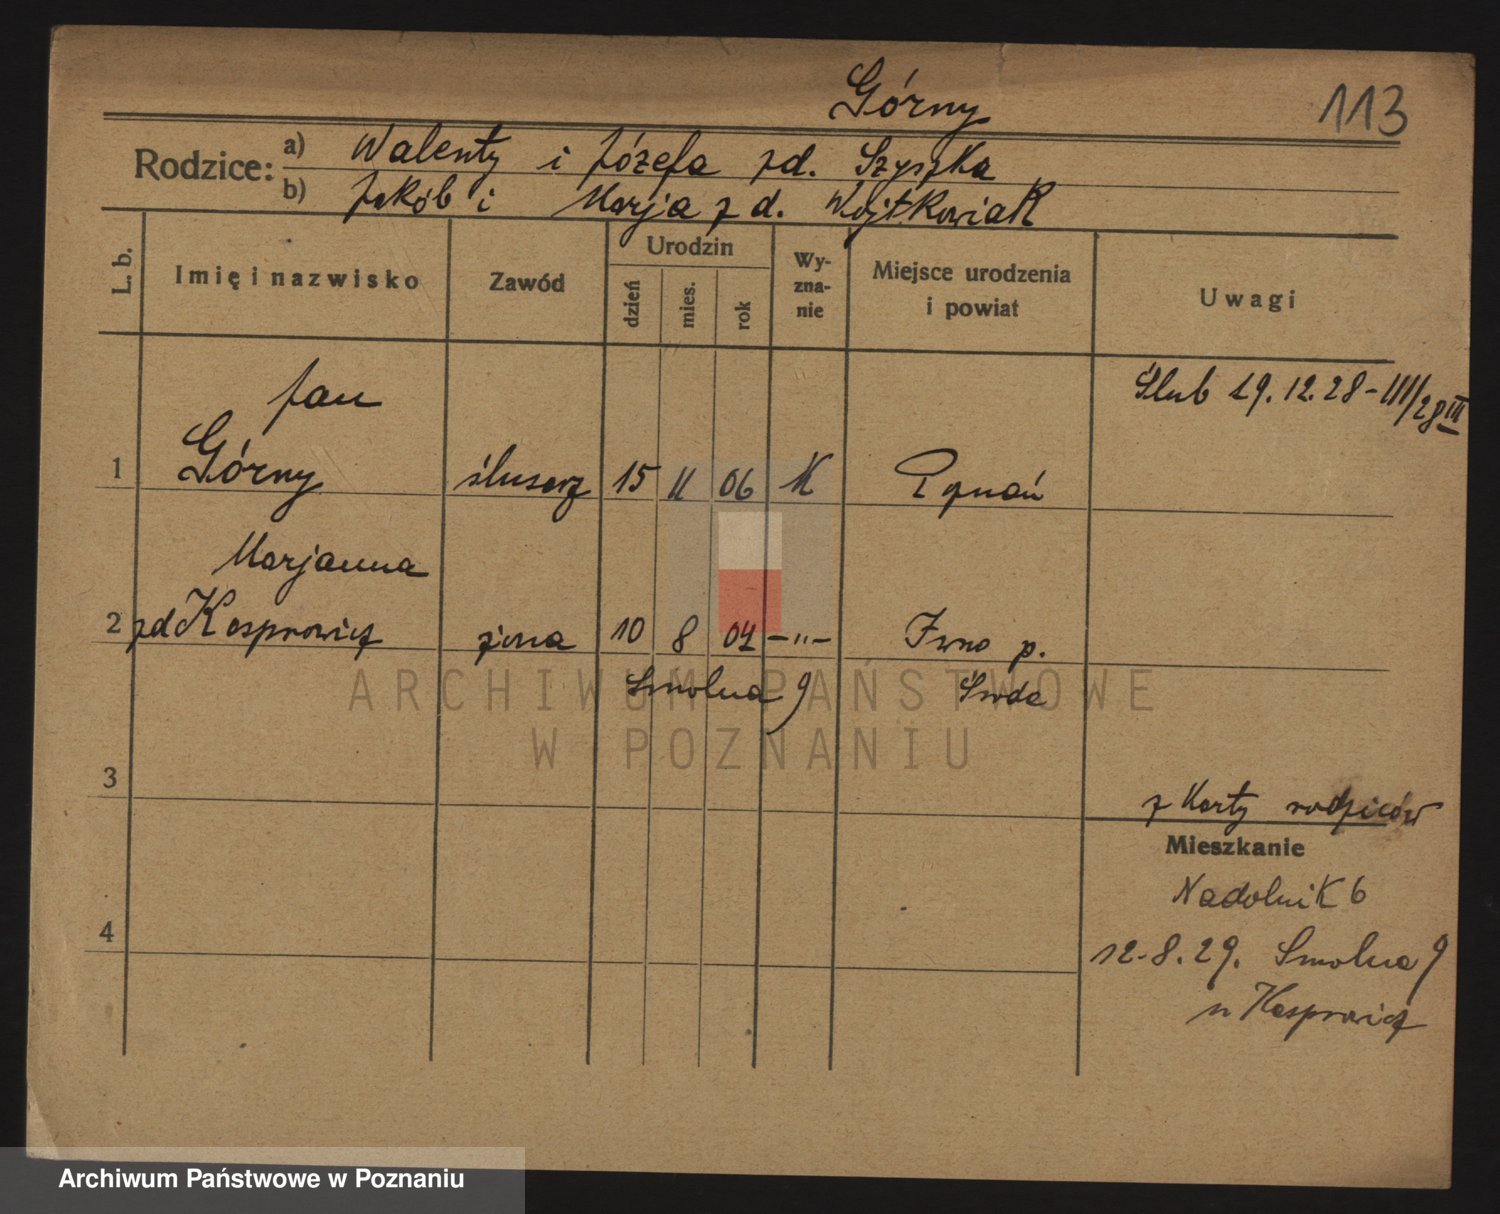 Górny
113
Rodzice: a) Walenty i Józefa zd. Szyszka
b) Jakób i Marja zd. Wojtkowiak
L. b.
Imię i nazwisko
Zawód
Urodzin
dzień
mies.
rok
Wy-
zna-
nie
Miejsce urodzenia
i powiat
Uwagi
Jan
Ślub 19.12.28 - III/28 III
1 Górny ślusarz 15 11 06 K Poznań
Marjanna
2 zd Kasprowicz żona 10 8 04 -"- Iwno p.
Smolna 9 Środa
ARCHIWUM PAŃSTWOWE
W POZNANIU
3
z Karty rodziców
Mieszkanie
Nadolnik 6
4
12.8.29. Smolna 9
u Kasprowicz
Archiwum Państwowe w Poznaniu